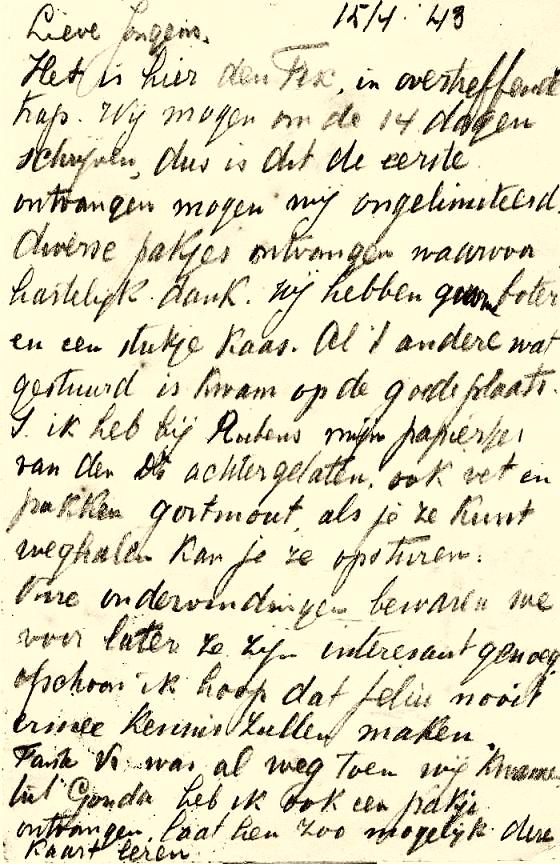 15/4 43
Lieve Jongens.
Het is hier den Fix, in overtreffende
trap. Wij mogen om de 14 dagen
schrijven, dus is dit de eerste
ontvangen mogen wij ongelimiteerd
diverse pakjes ontvangen waarvoor
hartelijk dank. Wij hebben boter
en een stukje kaas. Al 't andere wat
gestuurd is kwam op de goede plaats.
S. ik heb bij Rubens mijn papiertjes
van den achtergelaten, ook vet en
pakken gortmout, als je ze kunt
weghalen kan je ze opsturen.
Onze ondervindingen bewaren we
voor later ze zijn interesant genoeg
ofschoon ik hoop dat jelui nooit
ermee kennis zullen maken.
was al weg toen wij kwamen
uit Gouda heb ik ook een pakje
ontvangen, laat hen zoo mogelijk deze
kaart lezen